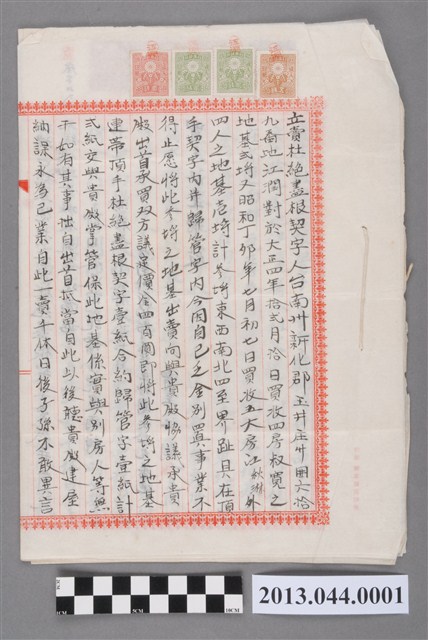 立賣杜絕盡根契字人台南州新化郡玉井庄卅圍六拾
九番地江潤對於大正四年拾弍月拾日買收四房叔寬之
地基弍埒又昭和丁卯年七月初七日買收五大房江 外
四人之地基壱埒計參埒東西南北四至界趾具在頂
手契字內幷歸管字內今因自己乏金別置事業不
得止愿將此參埒之地基出賣向與貴 協議承貴
出首承買双方議定價金四百圓即將此參埒之地基
連帶頂手杜絕盡根契字壹紙合約歸管字壹紙計
弍紙交與貴 掌管保此地基係實與別房人等無
干如有其事 出自出首抵當自此以後聽貴 建屋
納課永為己業自此一賣千休日後子孫不敢異言
2013.044.0001